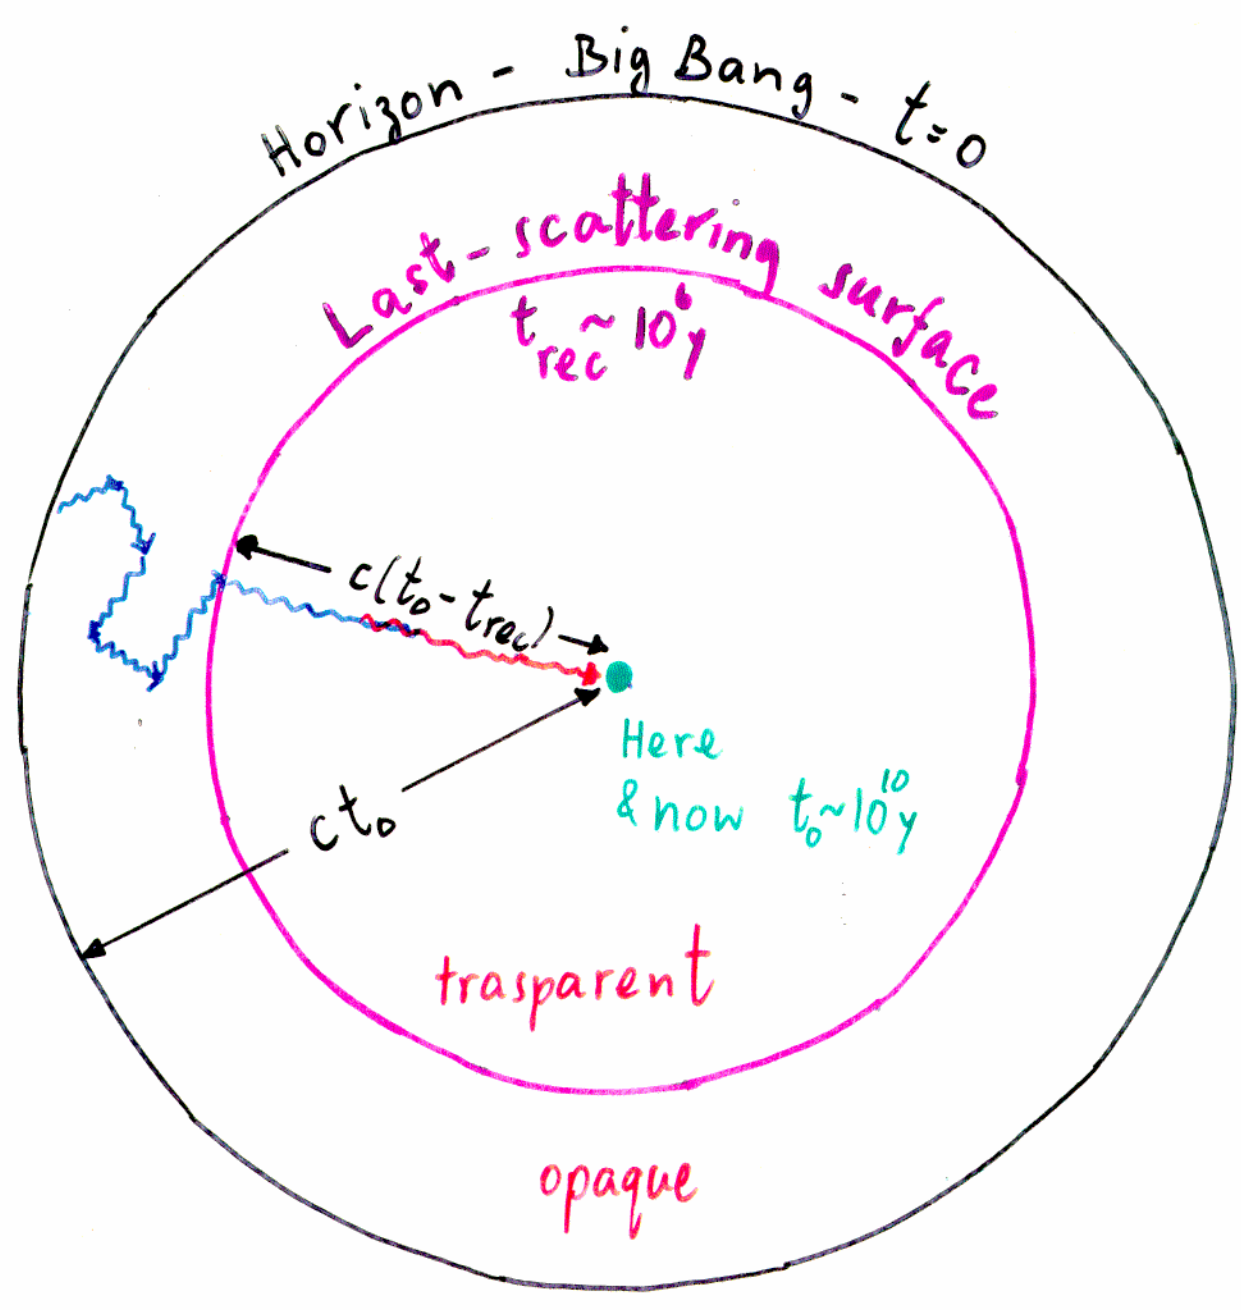 Horizon - Big Bang - t=0
Last-scattering surface
t_rec ~ 10⁶y
c(t₀-t_rec)
Here
& now t₀~10¹⁰y
ct₀
trasparent
opaque